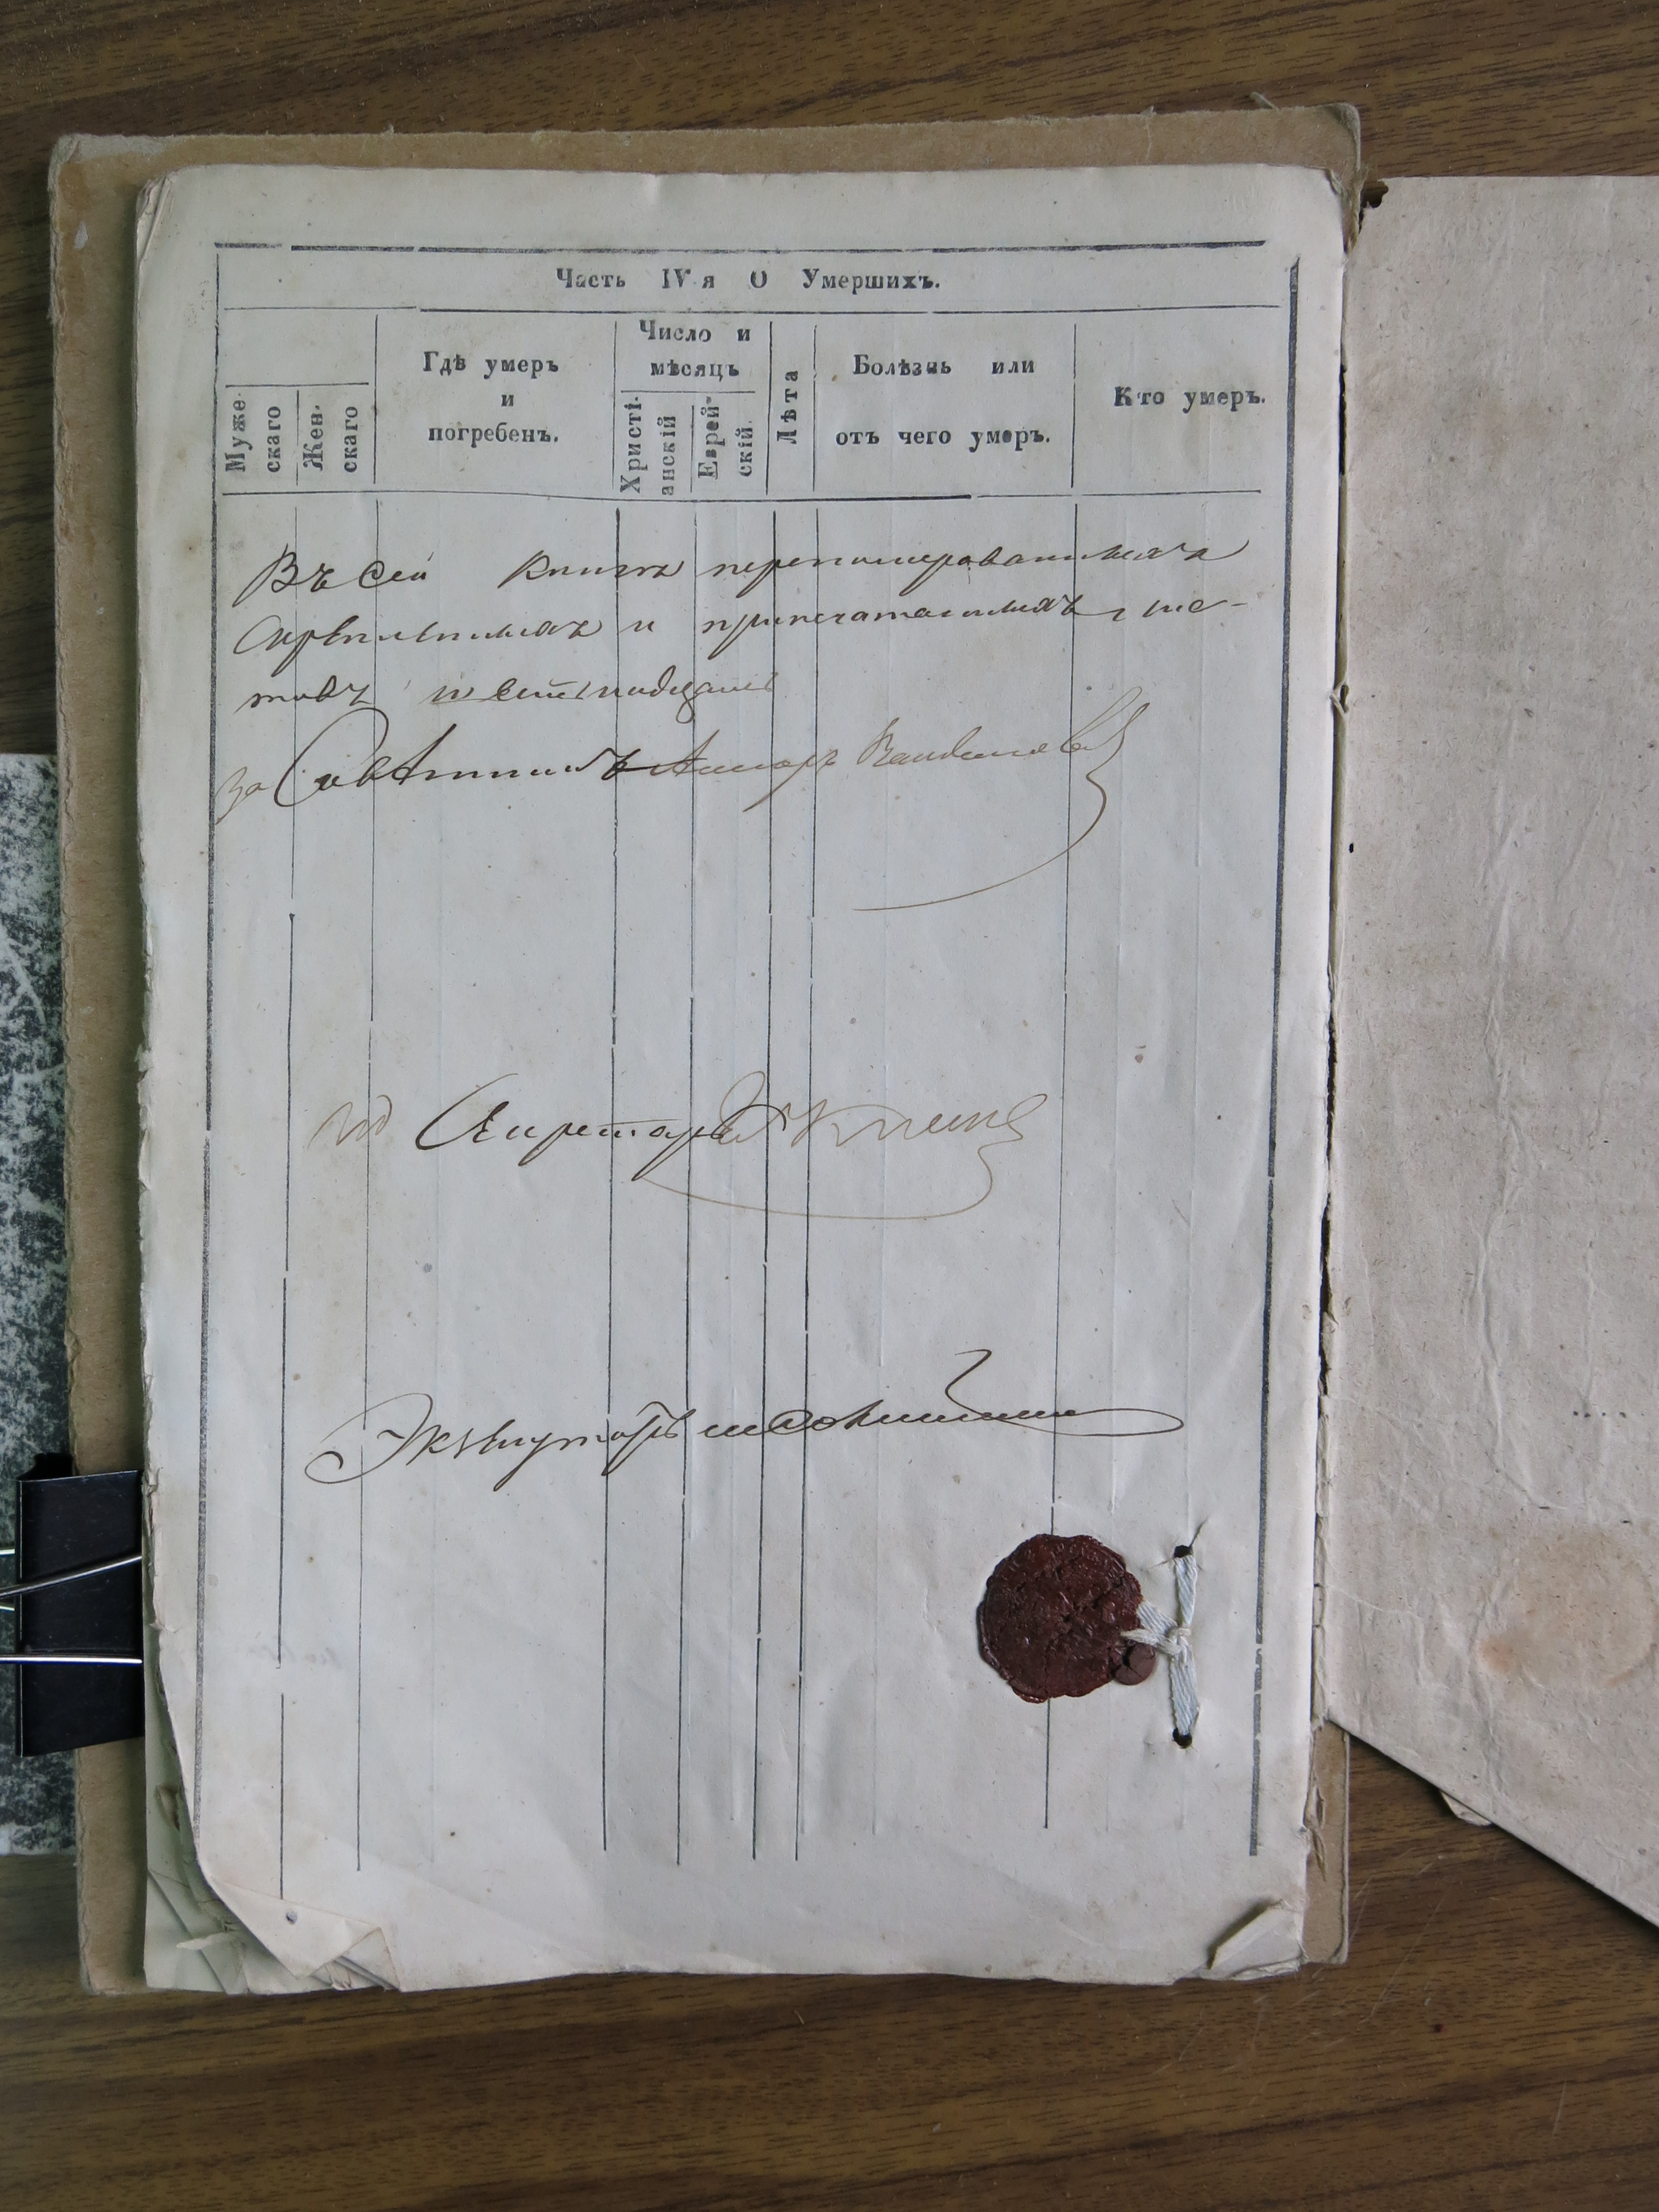 Часть IV я О Умершихъ.
Муже-
скаго
Жен-
скаго
Гдѣ умеръ
и
погребенъ.
Число и
мѣсяцъ
Христі-
анскій
Еврей-
скій.
Лѣта
Болѣзнь или
отъ чего умеръ.
Кто умеръ.
Въ сей книгѣ перенумерованныхъ
скрѣпленныхъ и припечатанныхъ лис-
товъ
За Совѣтникъ
Секретарь
Экзекуторъ